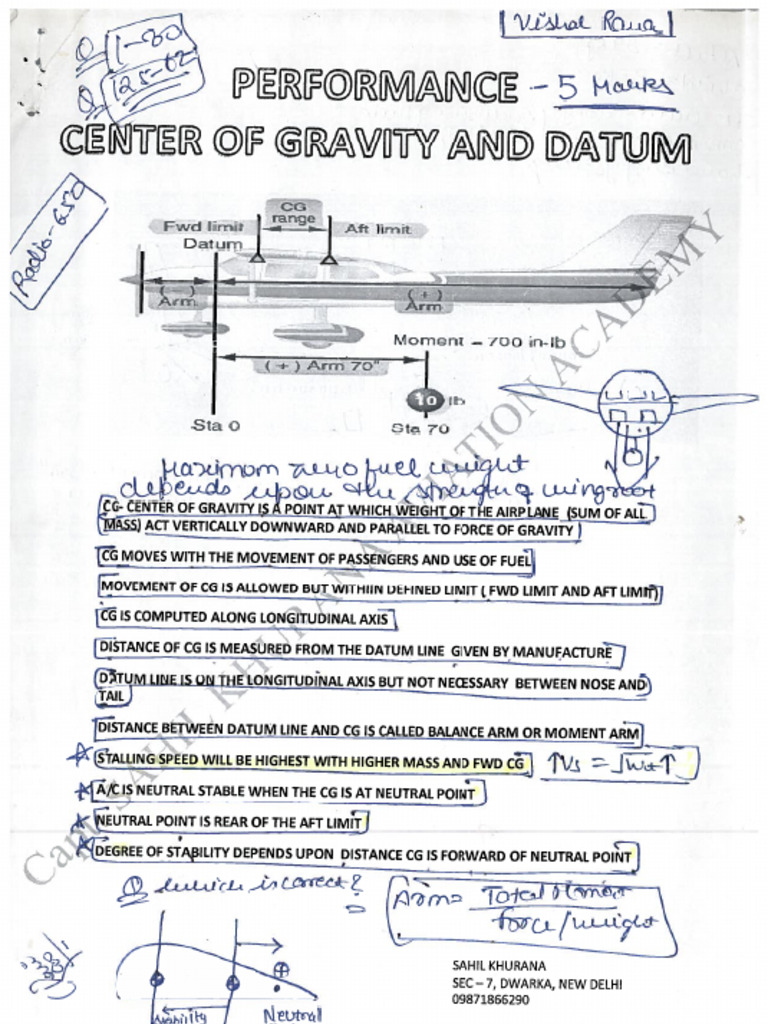 Q 1-80
Q 125-02
Vishal Rana
PERFORMANCE - 5 Marks
CENTER OF GRAVITY AND DATUM
Radio-650
CG
range
Fwd limit
Aft limit
Datum
( - )
Arm
( + )
Arm
Moment – 700 in-lb
( + ) Arm 70"
10 lb
Sta 0
Sta 70
Maximum zero fuel weight
depends upon the strength of wing root
CG- CENTER OF GRAVITY IS A POINT AT WHICH WEIGHT OF THE AIRPLANE (SUM OF ALL
MASS) ACT VERTICALLY DOWNWARD AND PARALLEL TO FORCE OF GRAVITY
CG MOVES WITH THE MOVEMENT OF PASSENGERS AND USE OF FUEL
MOVEMENT OF CG IS ALLOWED BUT WITHIIN DEFINED LIMIT ( FWD LIMIT AND AFT LIMIT)
CG IS COMPUTED ALONG LONGITUDINAL AXIS
DISTANCE OF CG IS MEASURED FROM THE DATUM LINE GIVEN BY MANUFACTURE
DATUM LINE IS ON THE LONGITUDINAL AXIS BUT NOT NECESSARY BETWEEN NOSE AND
TAIL
DISTANCE BETWEEN DATUM LINE AND CG IS CALLED BALANCE ARM OR MOMENT ARM
STALLING SPEED WILL BE HIGHEST WITH HIGHER MASS AND FWD CG ↑Vs = √Wt↑
A/C IS NEUTRAL STABLE WHEN THE CG IS AT NEUTRAL POINT
NEUTRAL POINT IS REAR OF THE AFT LIMIT
DEGREE OF STABILITY DEPENDS UPON DISTANCE CG IS FORWARD OF NEUTRAL POINT
Q which is correct?
Arm = Total Moment
force/weight
Stability
Neutral
SAHIL KHURANA
SEC – 7, DWARKA, NEW DELHI
09871866290
Capt. SAHIL KHURANA AVIATION ACADEMY